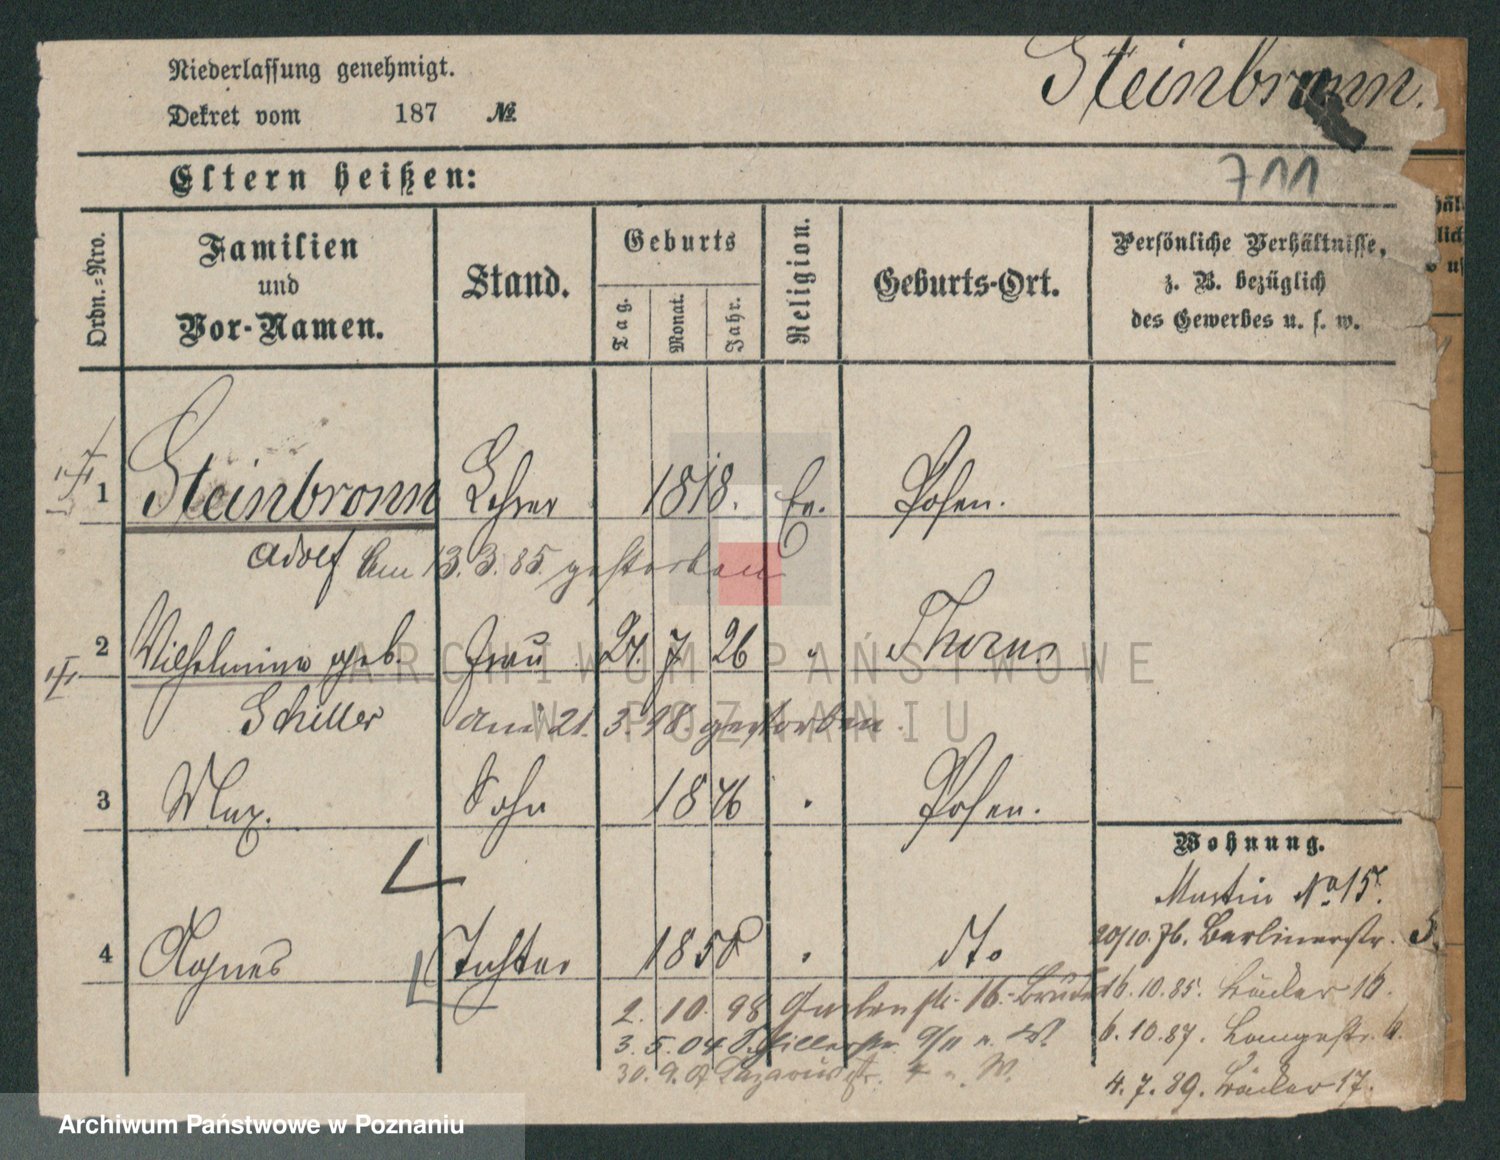 Niederlassung genehmigt.
Dekret vom 187 №
Steinbronn.
Eltern heißen:
711
Ordn.-Nro.
Familien
und
Vor-Namen.
Stand.
Geburts
Tag.
Monat.
Jahr.
Religion.
Geburts-Ort.
Persönliche Verhältnisse,
z. B. bezüglich
des Gewerbes u. s. w.
1 Steinbronn Lehrer 1818. Ev. Posen.
Adolf Am 13.3.85. gestorben
2 Wilhelmine geb. Frau 27. 7 26 " Thorn
Schiller am 21. 3. 98. gestorben.
3 Max. Sohn 1846 " Posen.
4 Agnes Tochter 1850 " dto
Wohnung.
Martin No 15.
20/10.76. Berlinerstr. 5.
16.10.85. Bäcker 16.
6.10.87. Langestr. 6.
4.7.89. Bäcker 17.
2. 10. 98 Gartenstr. 16. Bruder
3. 5. 04 9/11 n. W.
30. 9. Lazarusstr. W.
ARCHIWUM PAŃSTWOWE
W POZNANIU
Archiwum Państwowe w Poznaniu